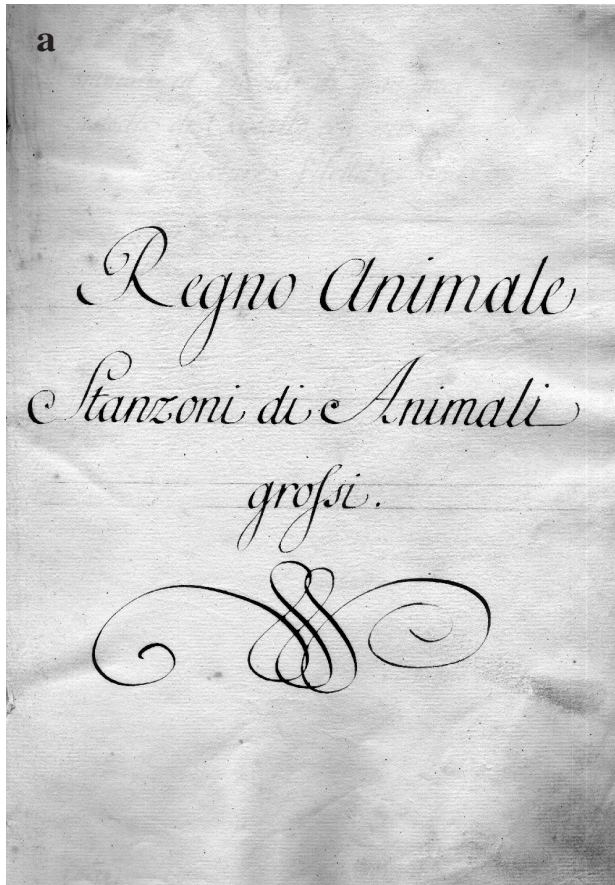 a
Regno Animale
Stanzoni di Animali
groſsi.